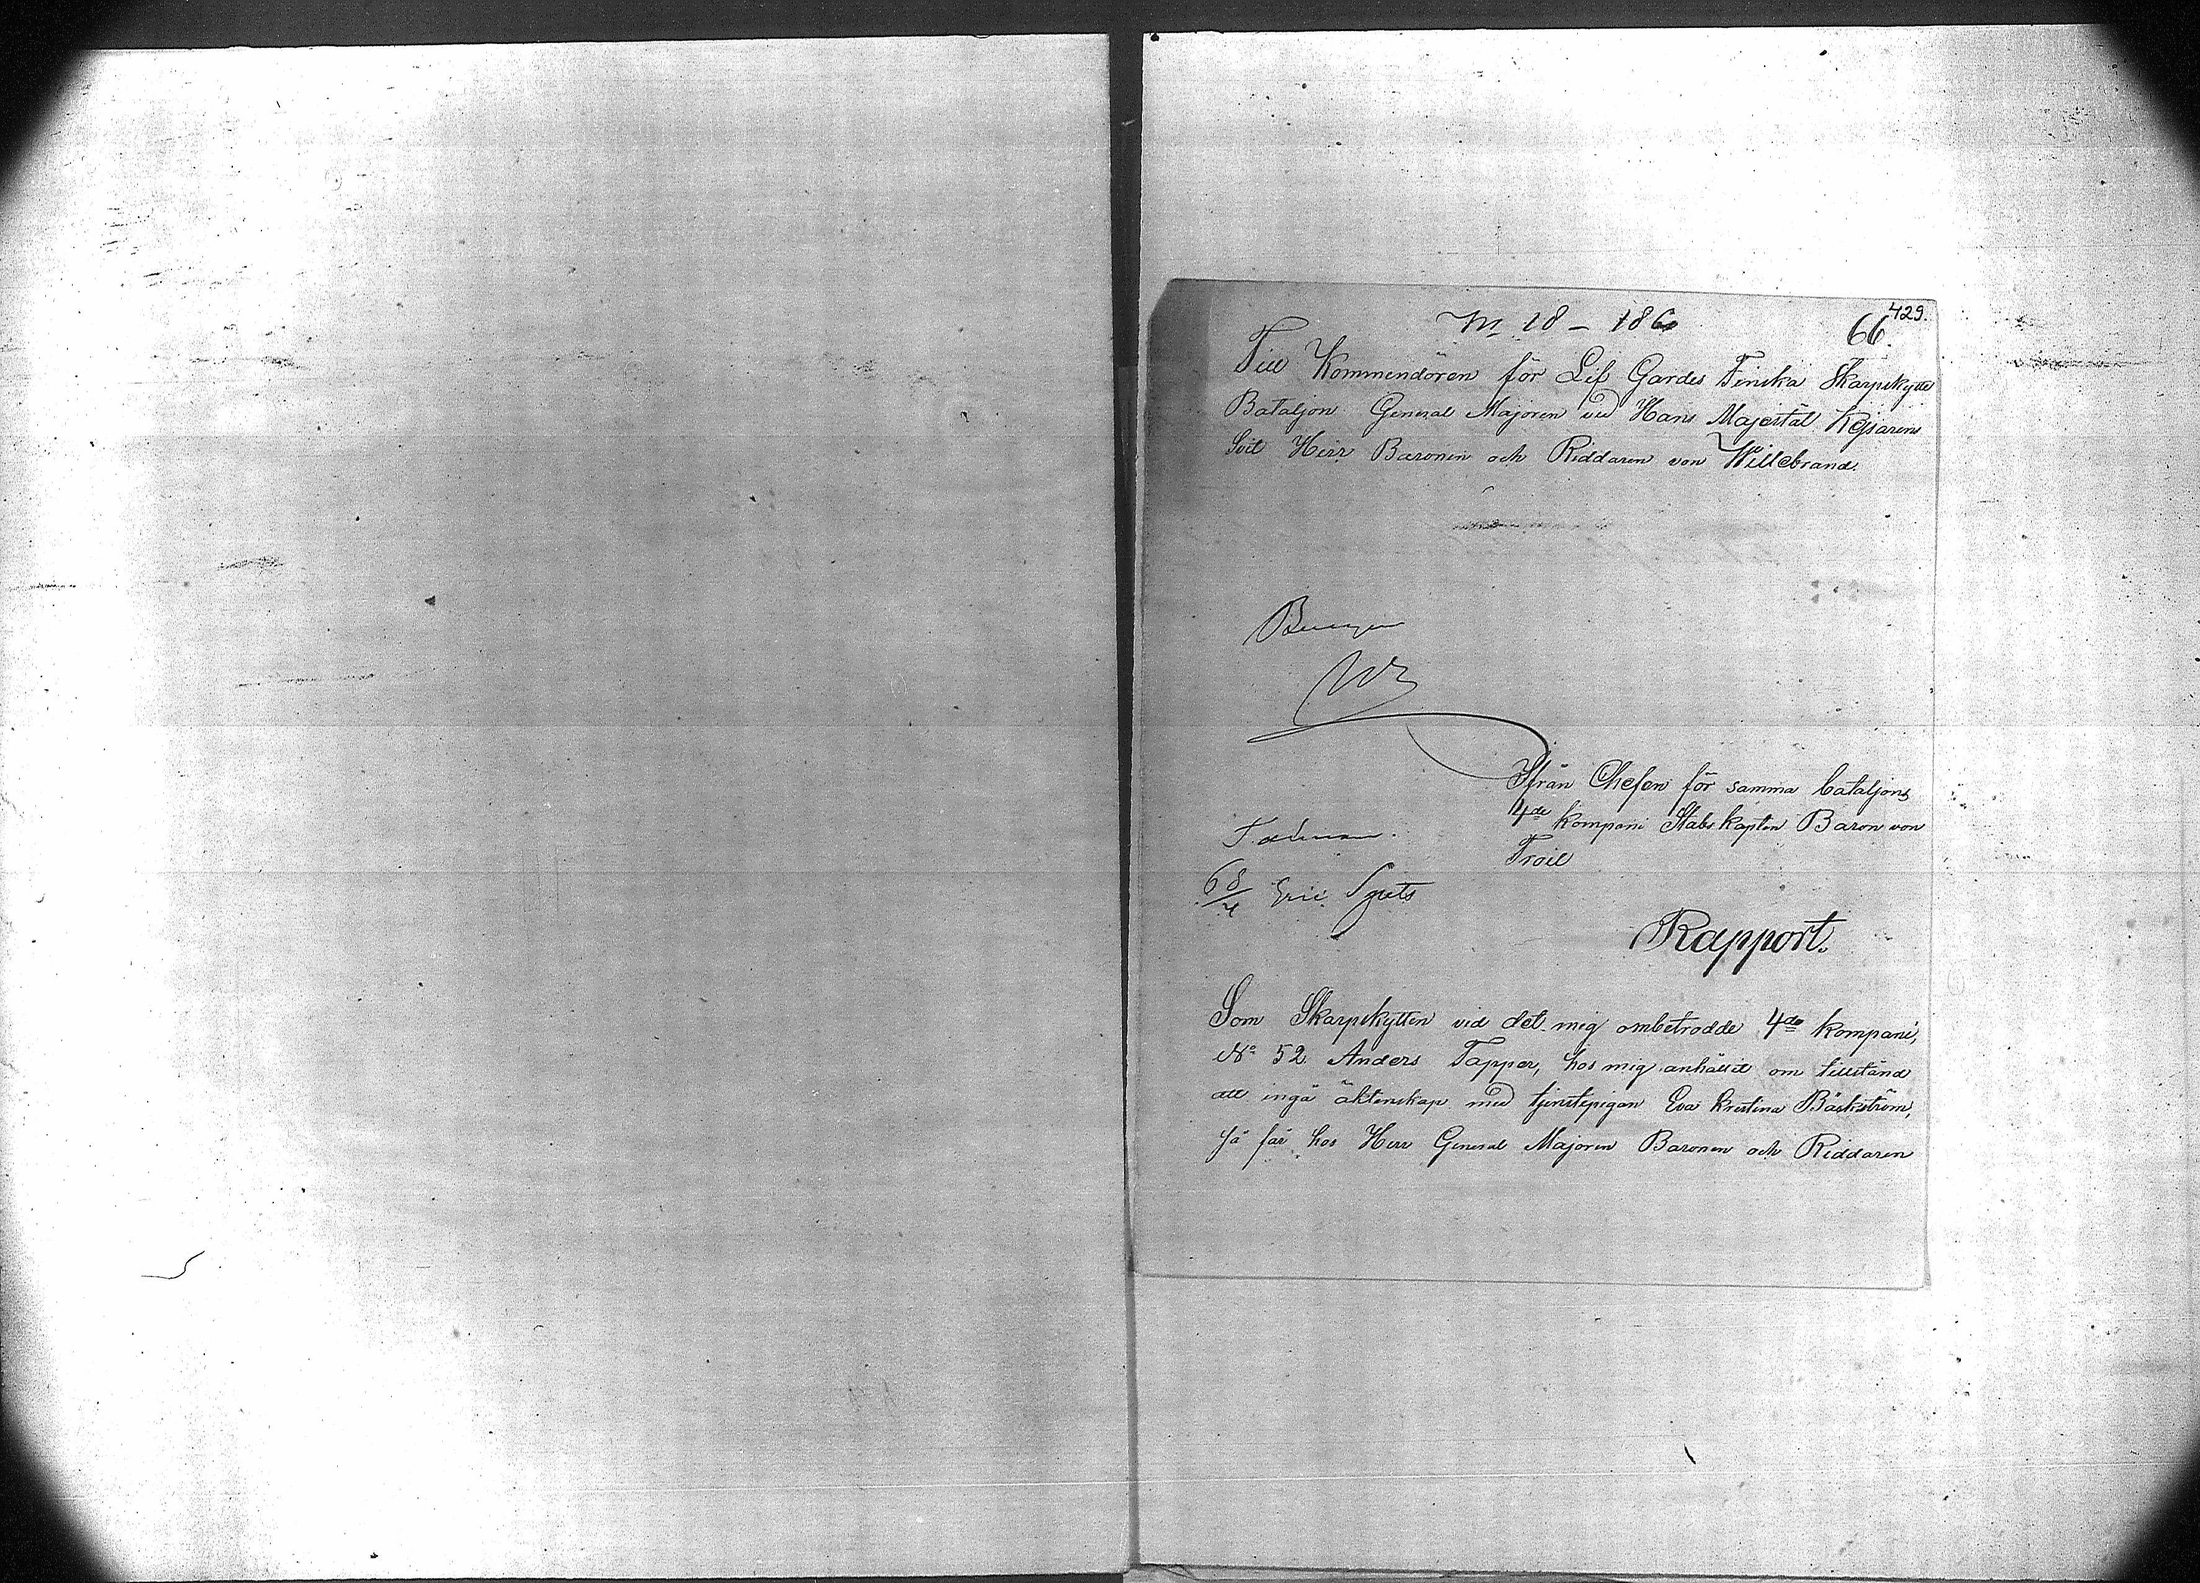 429.
18 – 186
66.
Till Kommendören för Lif Gardes Finska Skarpskytte
Bataljon General Majoren vid Hans Majestät Kejsarens
Svit Herr Baronen och Riddaren von Willebrand.
Ifrån Chefen för samma bataljons
4de kompani Stabskapten Baron von
Troil
Eric
Rapport.
Som Skarpskytten vid det mig ombetrodde 4de kompani,
No 52 Anders Tapper, hos mig anhållit om tillstånd
att ingå äktenskap med tjenstepigan Eva Kristina Bäckström,
Så får hos Herr General Majoren Baronen och Riddaren